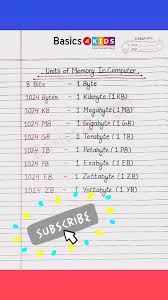 Basics 4 KIDS
Units of Memory In Computer
8 Bits - 1 Byte
1024 Bytes - 1 Kilobyte (1 KB)
1024 KB - 1 Megabyte (1 MB)
1024 MB - 1 Gigabyte (1 GB)
1024 GB - 1 Terabyte (1 TB)
1024 TB - 1 Petabyte (1 PB)
1024 PB - 1 Exabyte (1 EB)
1024 EB - 1 Zettabyte (1 ZB)
1024 ZB - 1 Yottabyte (1 YB)
SUBSCRIBE